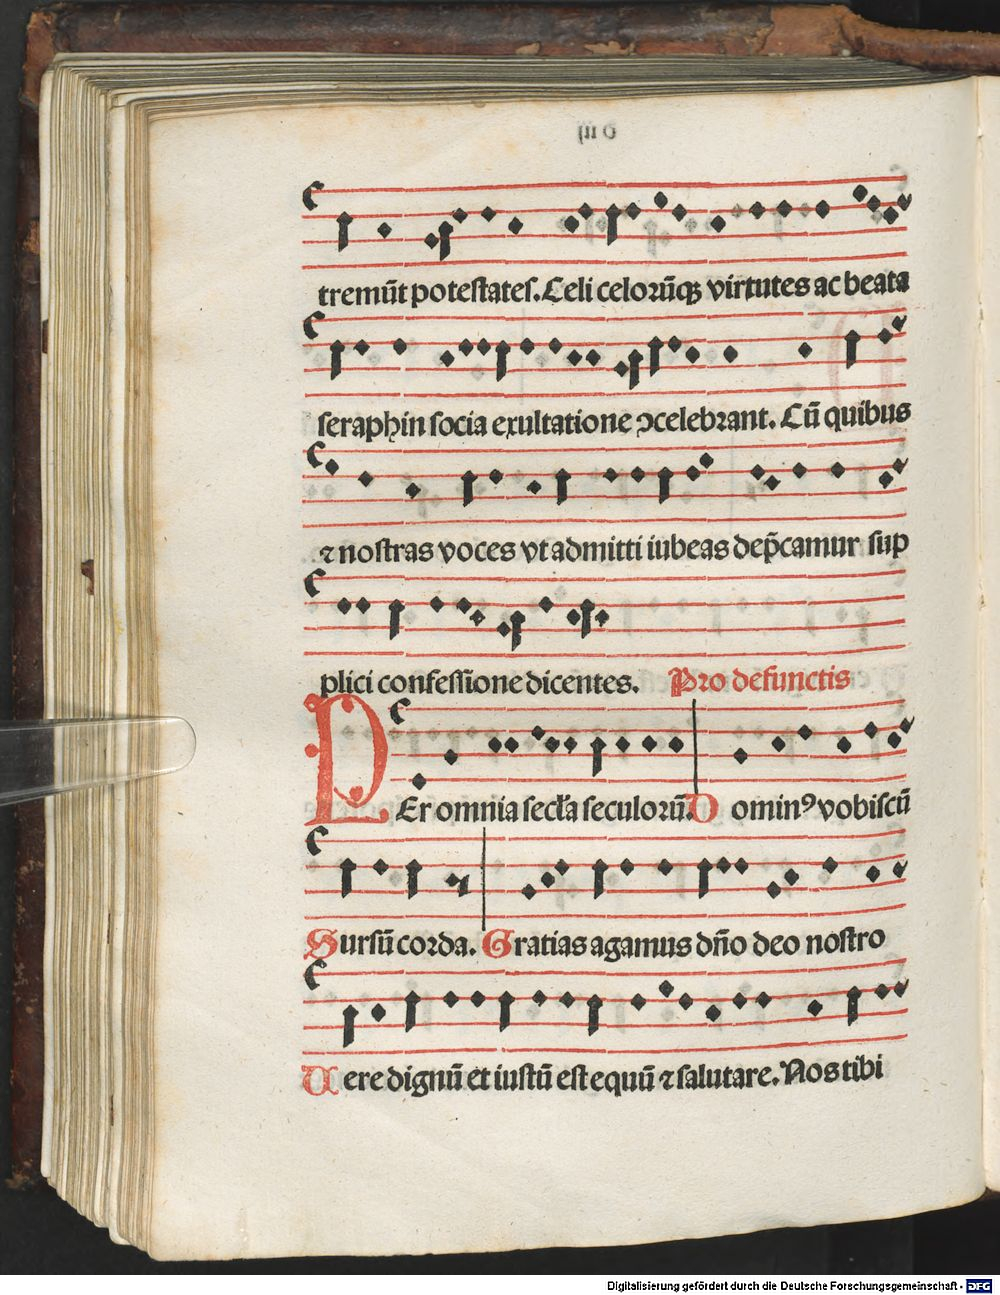 tremūt potestates. Celi celorūqꝫ virtutes ac beata
seraphin socia exultatione ↄcelebrant. Cū quibus
⁊ nostras voces vt admitti iubeas dep̄camur sup
plici confessione dicentes. Pro defunctis
PEr omnia secła seculorū. Dominꝰ vobiscū
Sursū corda. Gratias agamus dn̄o deo nostro
Uere dignū et iustū est equū ⁊ salutare. Nos tibi
Digitalisierung gefördert durch die Deutsche Forschungsgemeinschaft - DFG